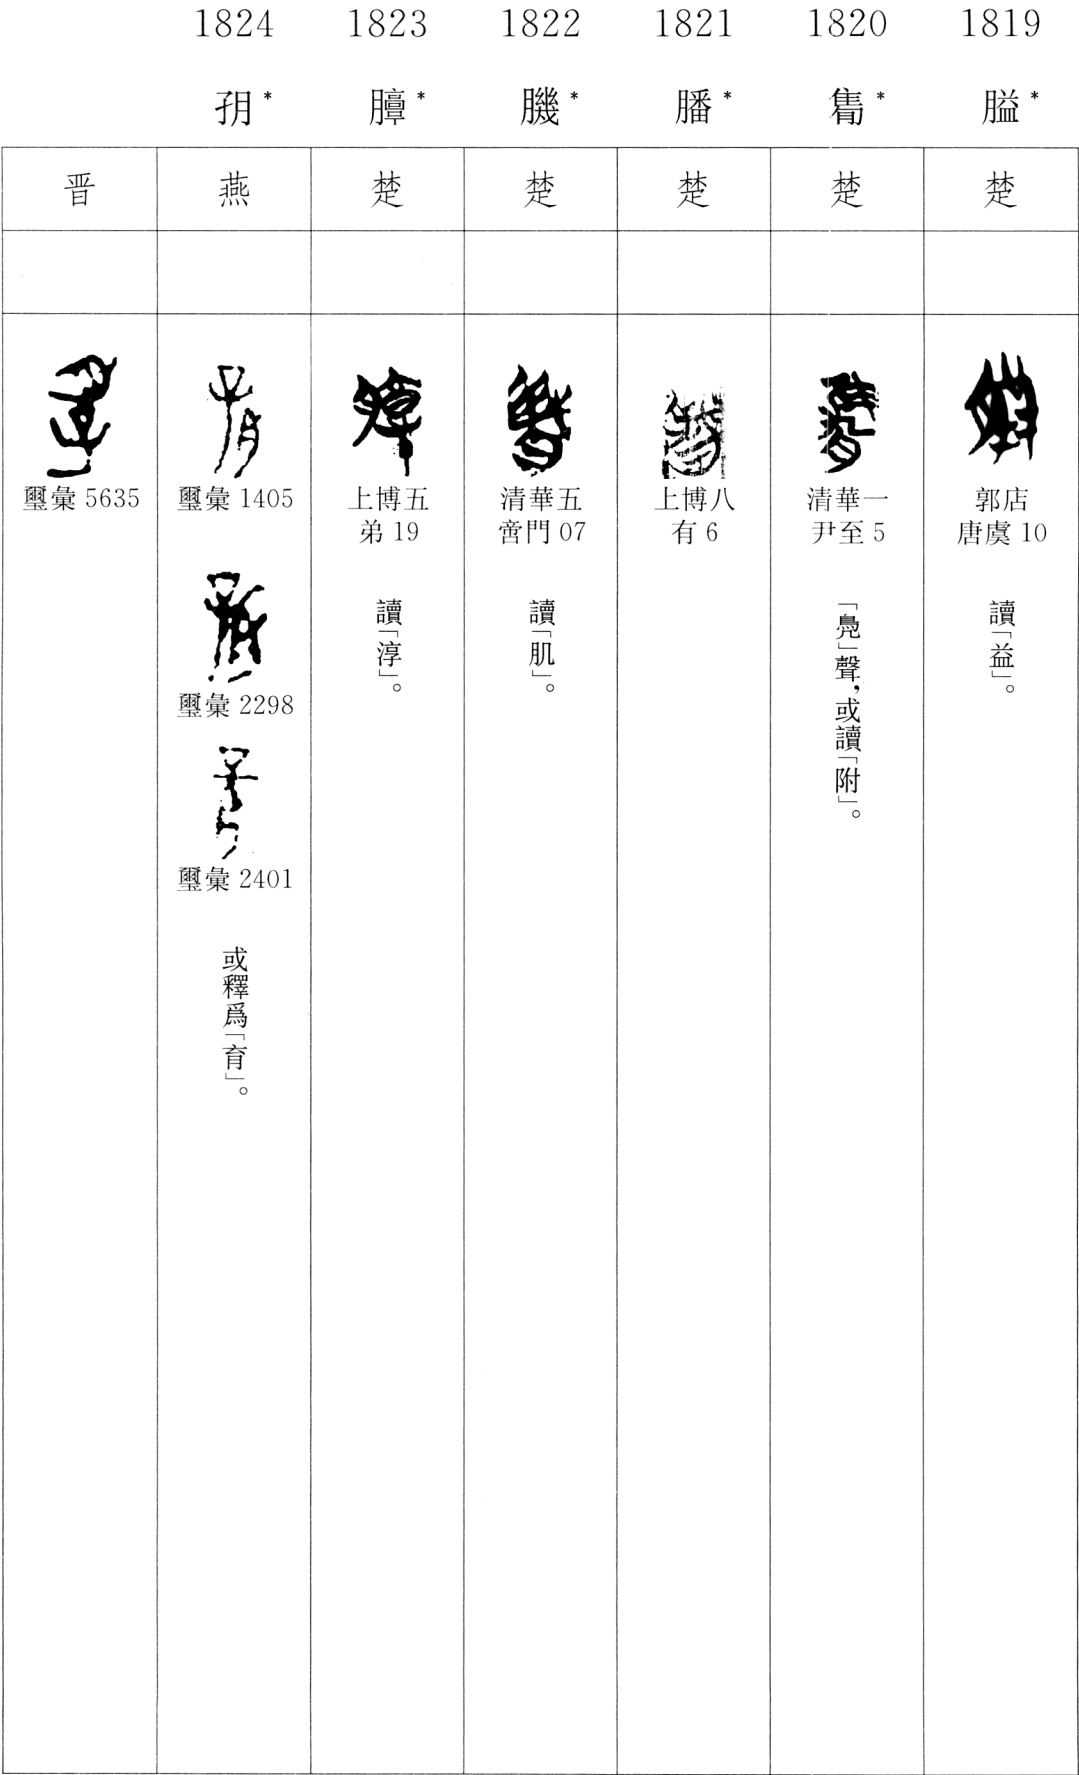 1819
膉*
楚
郭店
唐虞 10
讀「益」。
1820
*
楚
清華一
尹至 5
「鳧」聲，或讀「附」。
1821
膰*
楚
上博八
有 6
1822
*
楚
清華五
啻門 07
讀「肌」。
1823
*
楚
上博五
弟 19
讀「淳」。
1824
*
燕
璽彙 1405
璽彙 2298
璽彙 2401
或釋爲「育」。
晋
璽彙 5635